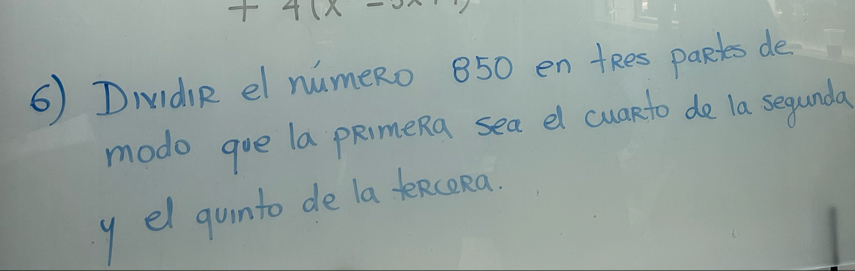 + 4(x
6) Dividir el número 850 en tres partes de
modo que la primera sea el cuarto de la segunda
y el quinto de la tercera.